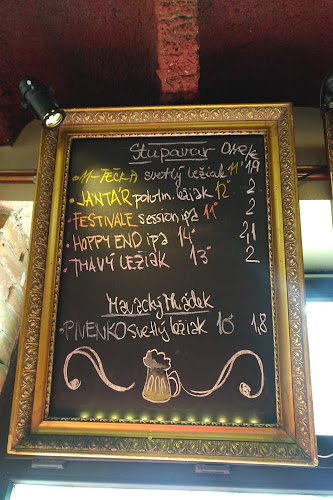 Stupavar 0,5l/€
11-TEČKA svetlý ležiak 11° 1,9
• JANTÁR polotm. ležiak 12° 2
• FESTIVALE session ipa 11° 2
• HOPPY END ipa 14° 2,1
• TMAVÝ LEŽIAK 13° 2
Mavacký Mládek
• PIVENKO svetlý ležiak 10° 1,8